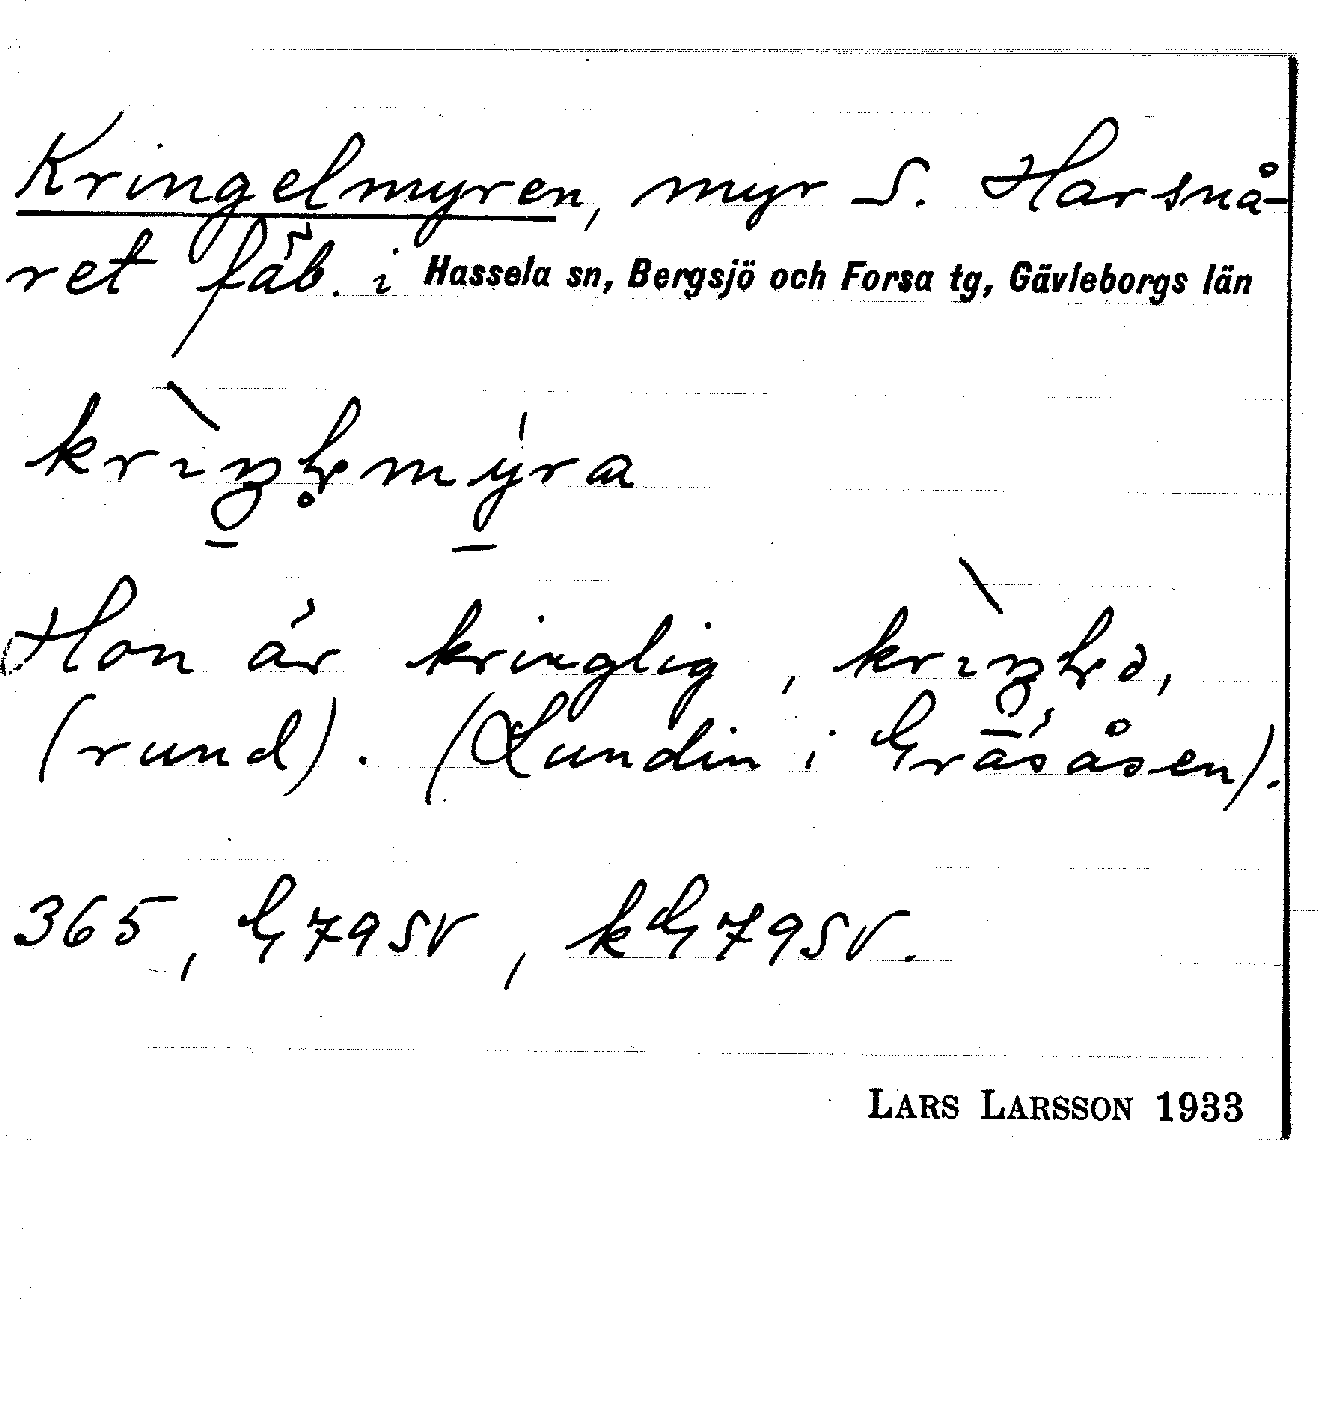 Kringelmyren, myr S. Harsnå-
ret fäb. i Hassela sn, Bergsjö och Forsa tg, Gävleborgs län
Hon är kringlig,
(rund). (Lundin i Gräsåsen).
365, G79SV, kG79SV.
LARS LARSSON 1933